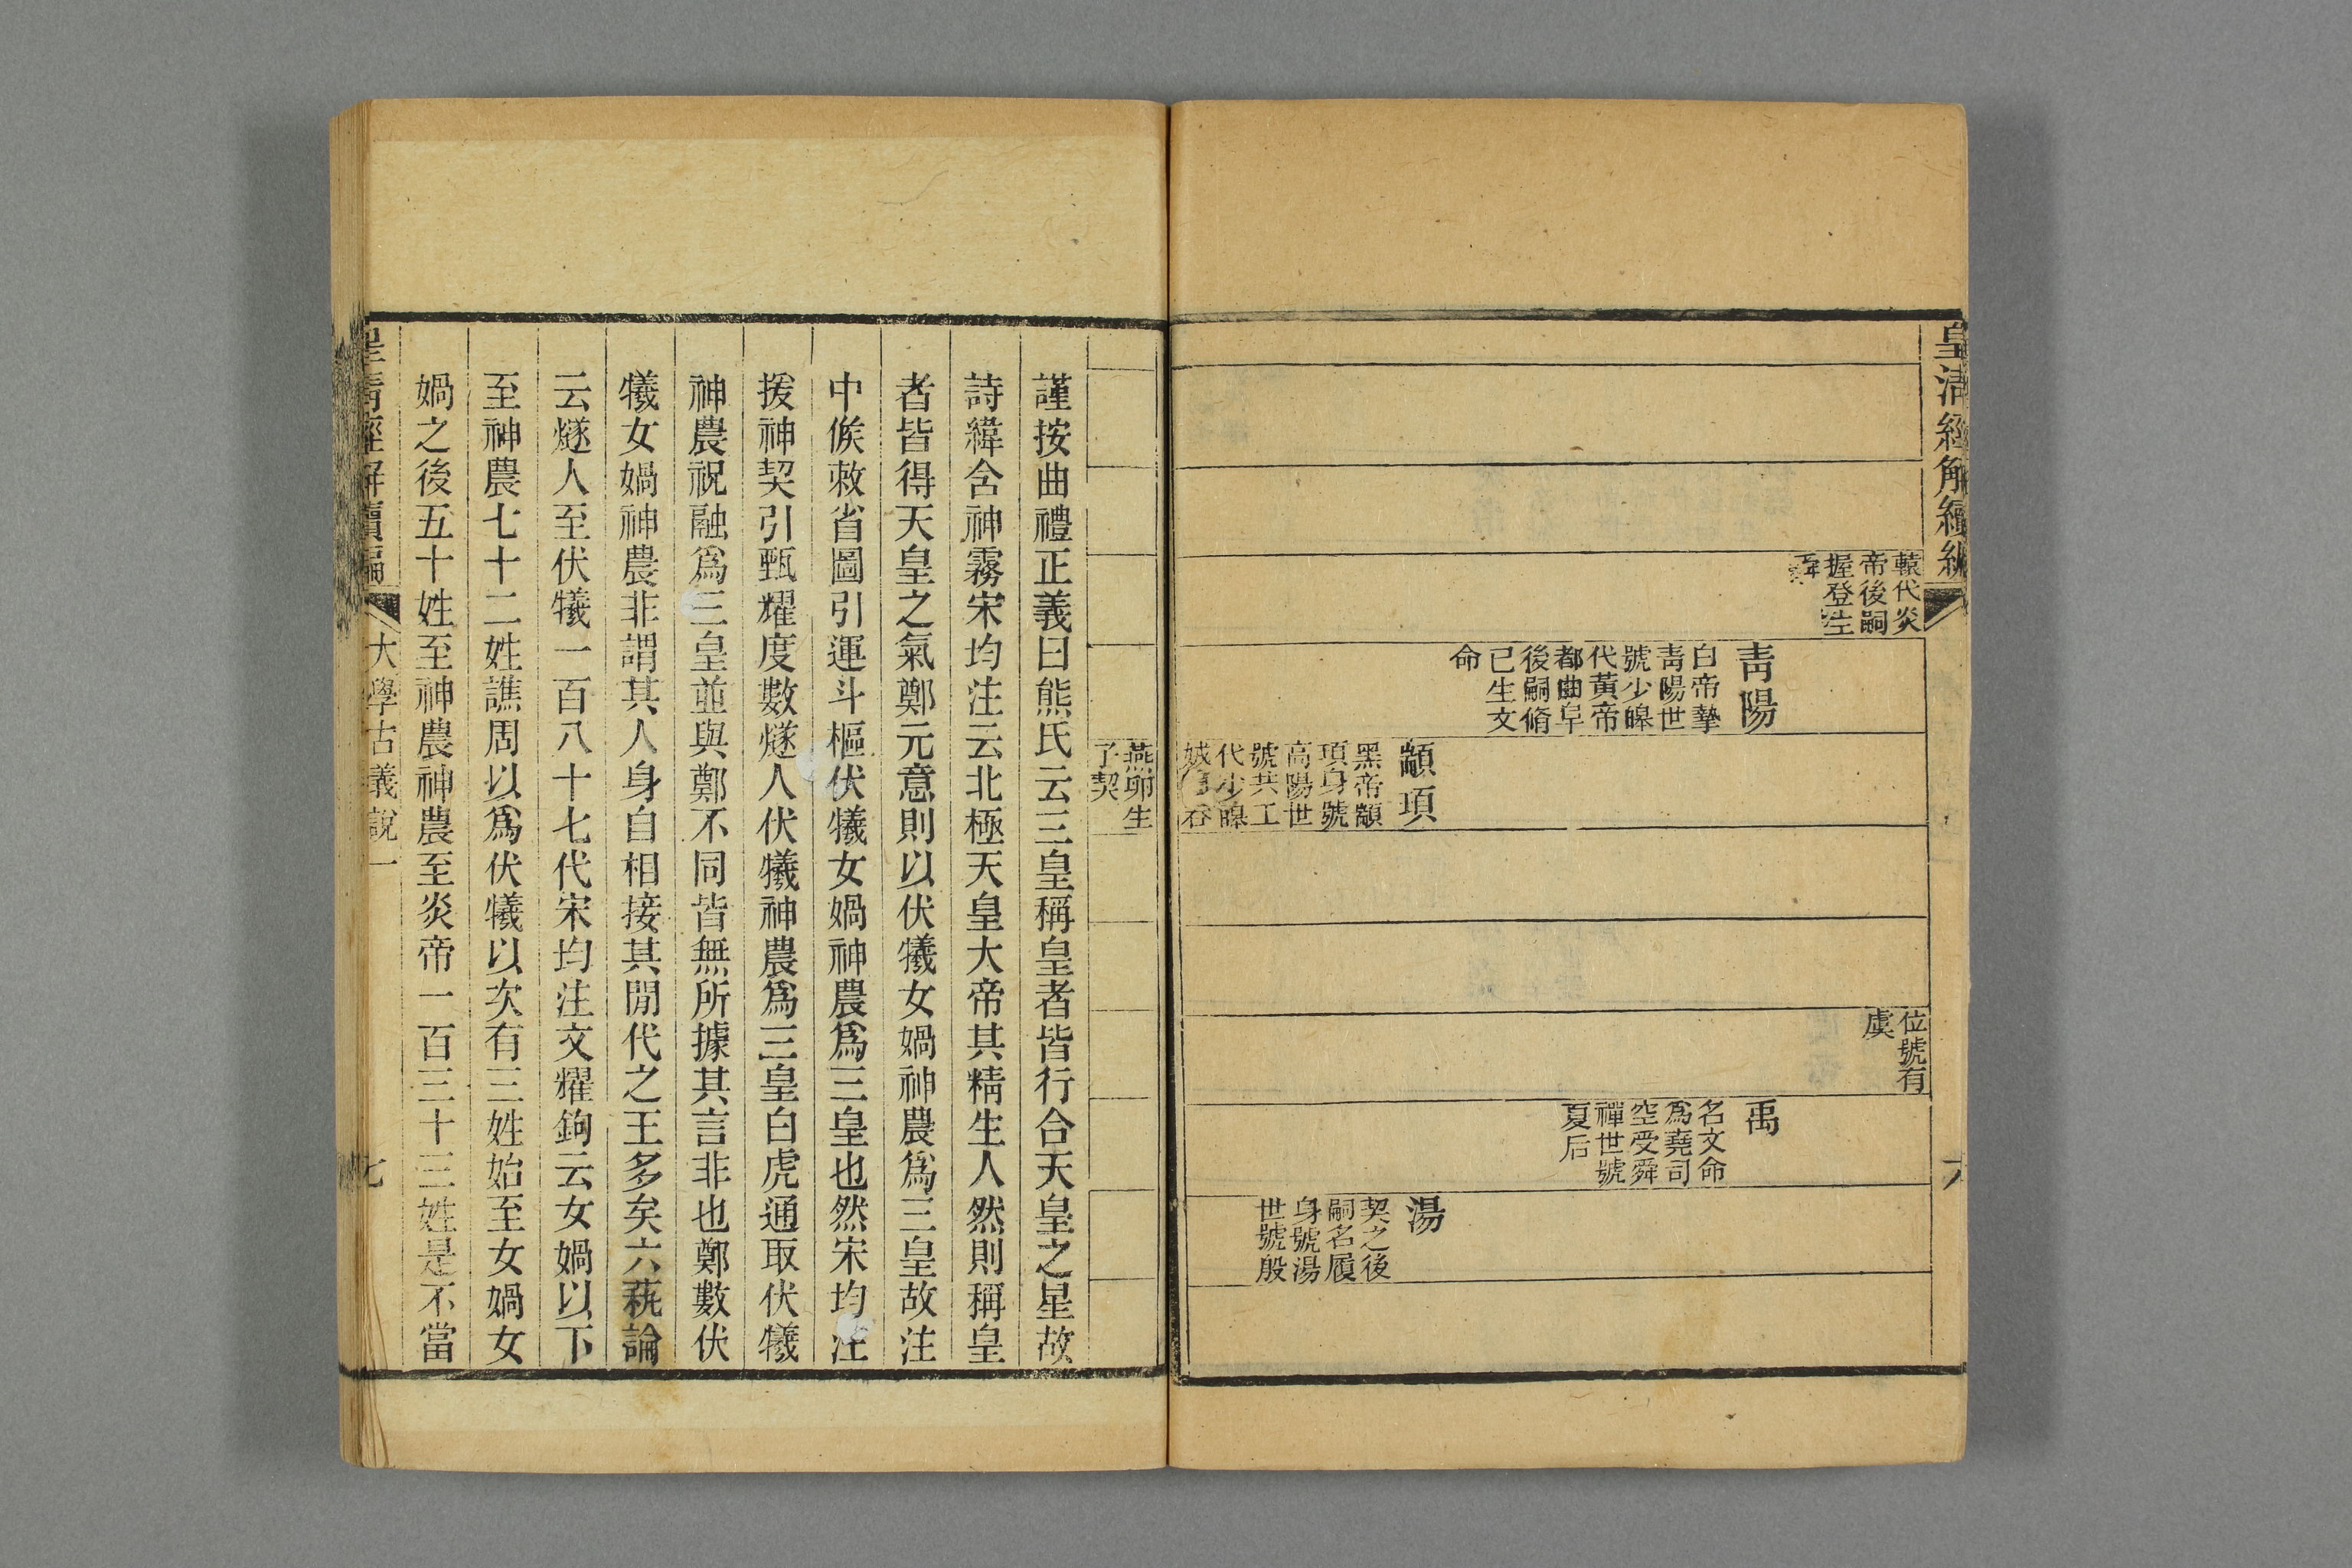 皇清經解續編
六
轅代炎
帝後嗣
握登生
青陽
白帝摯
青陽世
號少皞
代黃帝
都曲阜
後嗣脩
己生文
命
顓頊
黑帝顓
頊身號
高陽世
號共工
代少皞
位號有
虞
禹
名文命
爲堯司
空受舜
禪世號
夏后
湯
契之後
嗣名履
身號湯
世號殷
燕卵生
子契
謹按曲禮正義曰熊氏云三皇稱皇者皆行合天皇之星故
詩緯含神霧宋均注云北極天皇大帝其精生人然則稱皇
者皆得天皇之氣鄭元意則以伏犧女媧神農爲三皇故注
中候敕省圖引運斗樞伏犧女媧神農爲三皇也然宋均注
援神契引甄耀度數燧人伏犧神農爲三皇白虎通取伏犧
神農祝融爲三皇並與鄭不同皆無所據其言非也鄭數伏
犧女媧神農非謂其人身自相接其閒代之王多矣六蓺論
云燧人至伏犧一百八十七代宋均注文耀鉤云女媧以下
至神農七十二姓譙周以爲伏犧以次有三姓始至女媧女
媧之後五十姓至神農神農至炎帝一百三十三姓是不當
皇清經解續編
大學古義說一
七